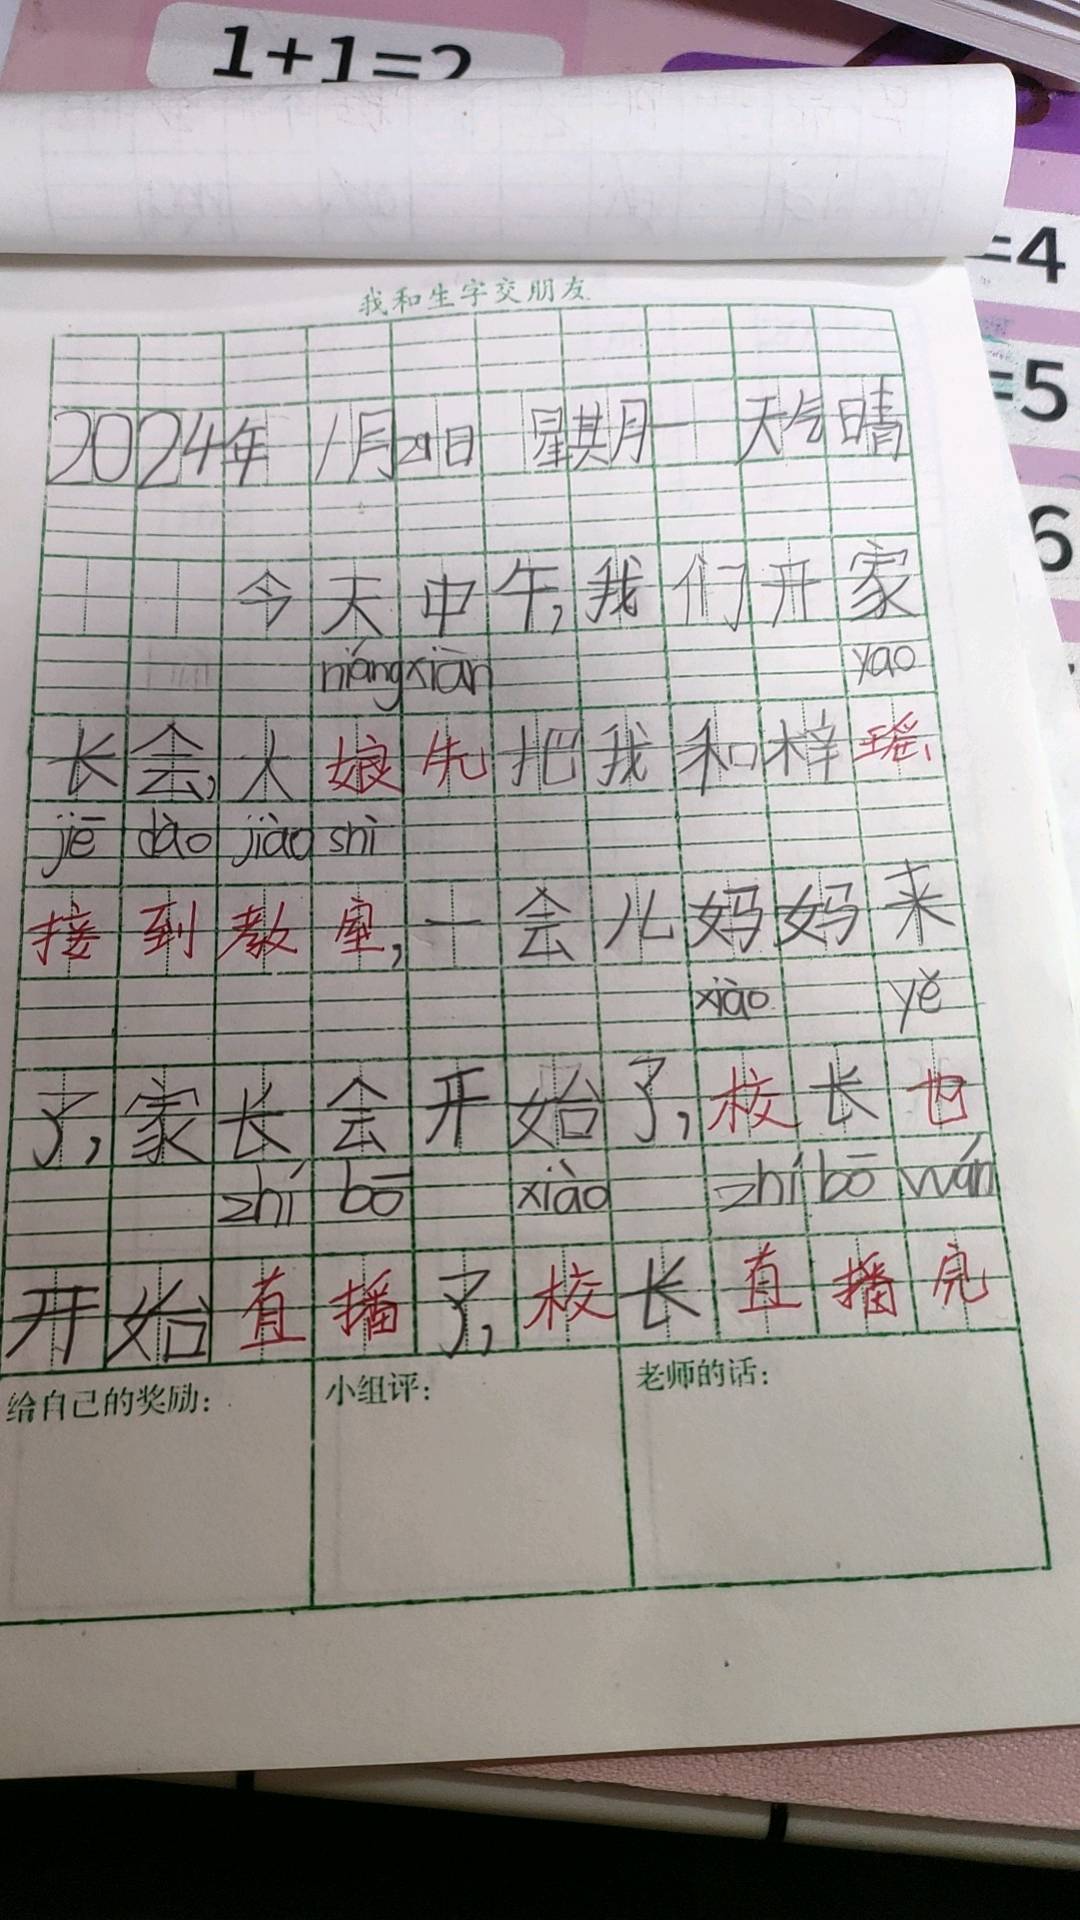 1+1=2
=4
=5
6
我和生字交朋友
2024年 1月29日 星期一 天气晴
今天中午,我们开家
niáng xiān yao
长会,大娘先把我和梓瑶、
jiē dào jiào shì
接到教室,一会儿妈妈来
xiào yě
了,家长会开始了,校长也
zhí bō xiào zhí bō wán
开始直播了,校长直播完
给自己的奖励: 小组评: 老师的话: